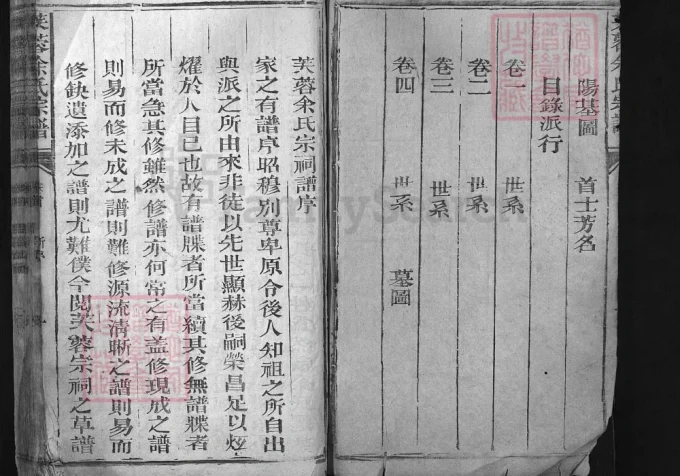 芙蓉余氏宗譜
陽基圖 首士芳名
目錄派行
卷一 世系
卷二 世系
卷三 世系
卷四 世系 墓圖
芙蓉余氏宗祠譜序
家之有譜序昭穆別尊卑原令後人知祖之所自出
與派之所由來非徒以先世顯赫後嗣榮昌足以炫
燿於人目已也故有譜牒者所當續其修無譜牒者
所當急其修雖然修譜亦何常之有盖修現成之譜
則易而修未成之譜則難修源流清晰之譜則易而
修缺遺添加之譜則尤難僕今閱芙蓉宗祠之草譜
芙蓉余氏宗譜
FamilySearch